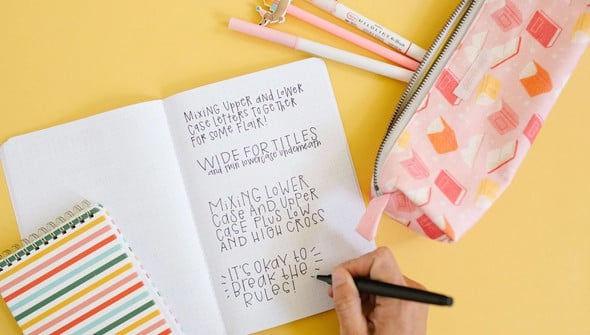 MiXiNG UPPER AND LOWER
CASE LETTERS TOGETHER
FOR SOME FLAiR!
WIDE FOR TITLES
and thin lowercase underneath
MiXiNG LOWER
CASE AND UPPER
CASE PLUS LOW
AND HIGH CROSS
iT'S OKAY TO
BREAK THE
RULES!